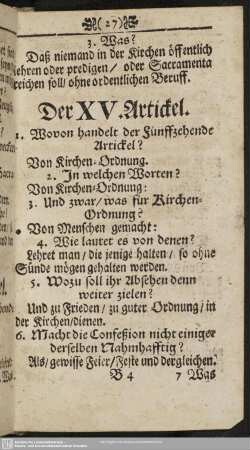 (27)
3. Was?
Daß niemand in der Kirchen öffentlich
lehren oder predigen/ oder Sacramenta
reichen soll/ ohne ordentlichen Beruff.
Der XV. Artickel.
1. Wovon handelt der Fünffzehende
Artickel?
Von Kirchen-Ordnung.
2. In welchen Worten?
Von Kirchen-Ordnung:
3. Und zwar/ was für Kirchen-
Ordnung?
Von Menschen gemacht:
4. Wie lautet es von denen?
Lehret man/ die jenige halten/ so ohne
Sünde mögen gehalten werden.
5. Wozu soll ihr Absehen denn
weiter zielen?
Und zu Frieden/ zu guter Ordnung/ in
der Kirchen/dienen.
6. Macht die Confeßion nicht einiger
derselben Nahmhafftig?
Als/ gewisse Feier/ Feste und dergleichen.
B 4 7 Was